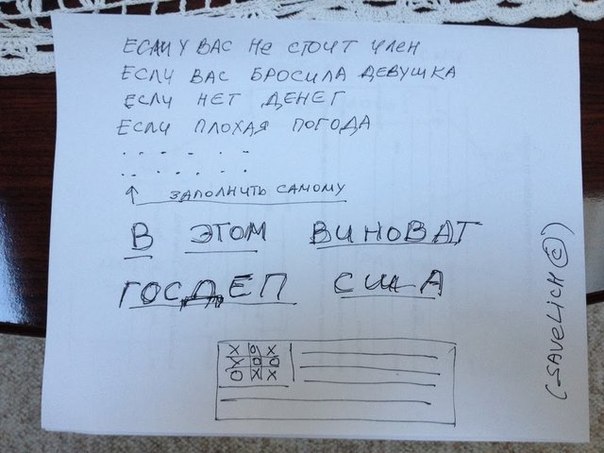 ЕСЛИ У ВАС НЕ СТОИТ ЧЛЕН
ЕСЛИ ВАС БРОСИЛА ДЕВУШКА
ЕСЛИ НЕТ ДЕНЕГ
ЕСЛИ ПЛОХАЯ ПОГОДА
. . . . . .
. . . . . .
↑ ЗАПОЛНИТЬ САМОМУ
В ЭТОМ ВИНОВАТ
ГОСДЕП США
X O X
X O O
O X X
(-SAVELICH ©)